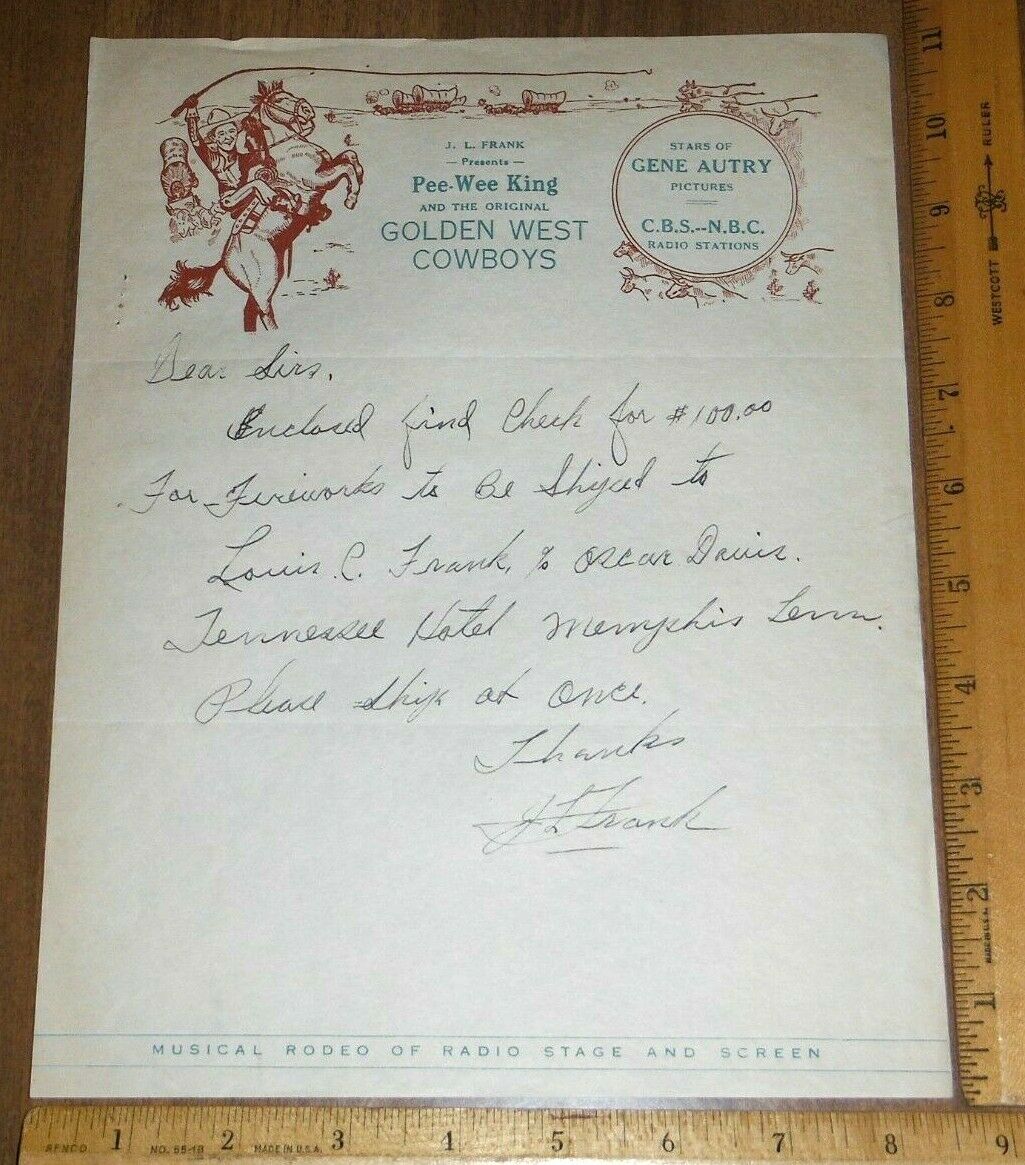 J. L. FRANK
— Presents —
Pee-Wee King
AND THE ORIGINAL
GOLDEN WEST
COWBOYS
STARS OF
GENE AUTRY
PICTURES
C.B.S.--N.B.C.
RADIO STATIONS
Dear Sirs,
Enclosed find Check for $100.00
For Fireworks to Be Shiped to
Louis C. Frank, % Oscar Davis.
Tennessee Hotel Memphis Tenn.
Please Ship at Once.
Thanks
J L Frank
MUSICAL RODEO OF RADIO STAGE AND SCREEN
11
10
9
8
7
6
5
4
3
2
1
WESTCOTT
RULER
1 2 3 4 5 6 7 8 9
NO. 55-18 MADE IN U.S.A.